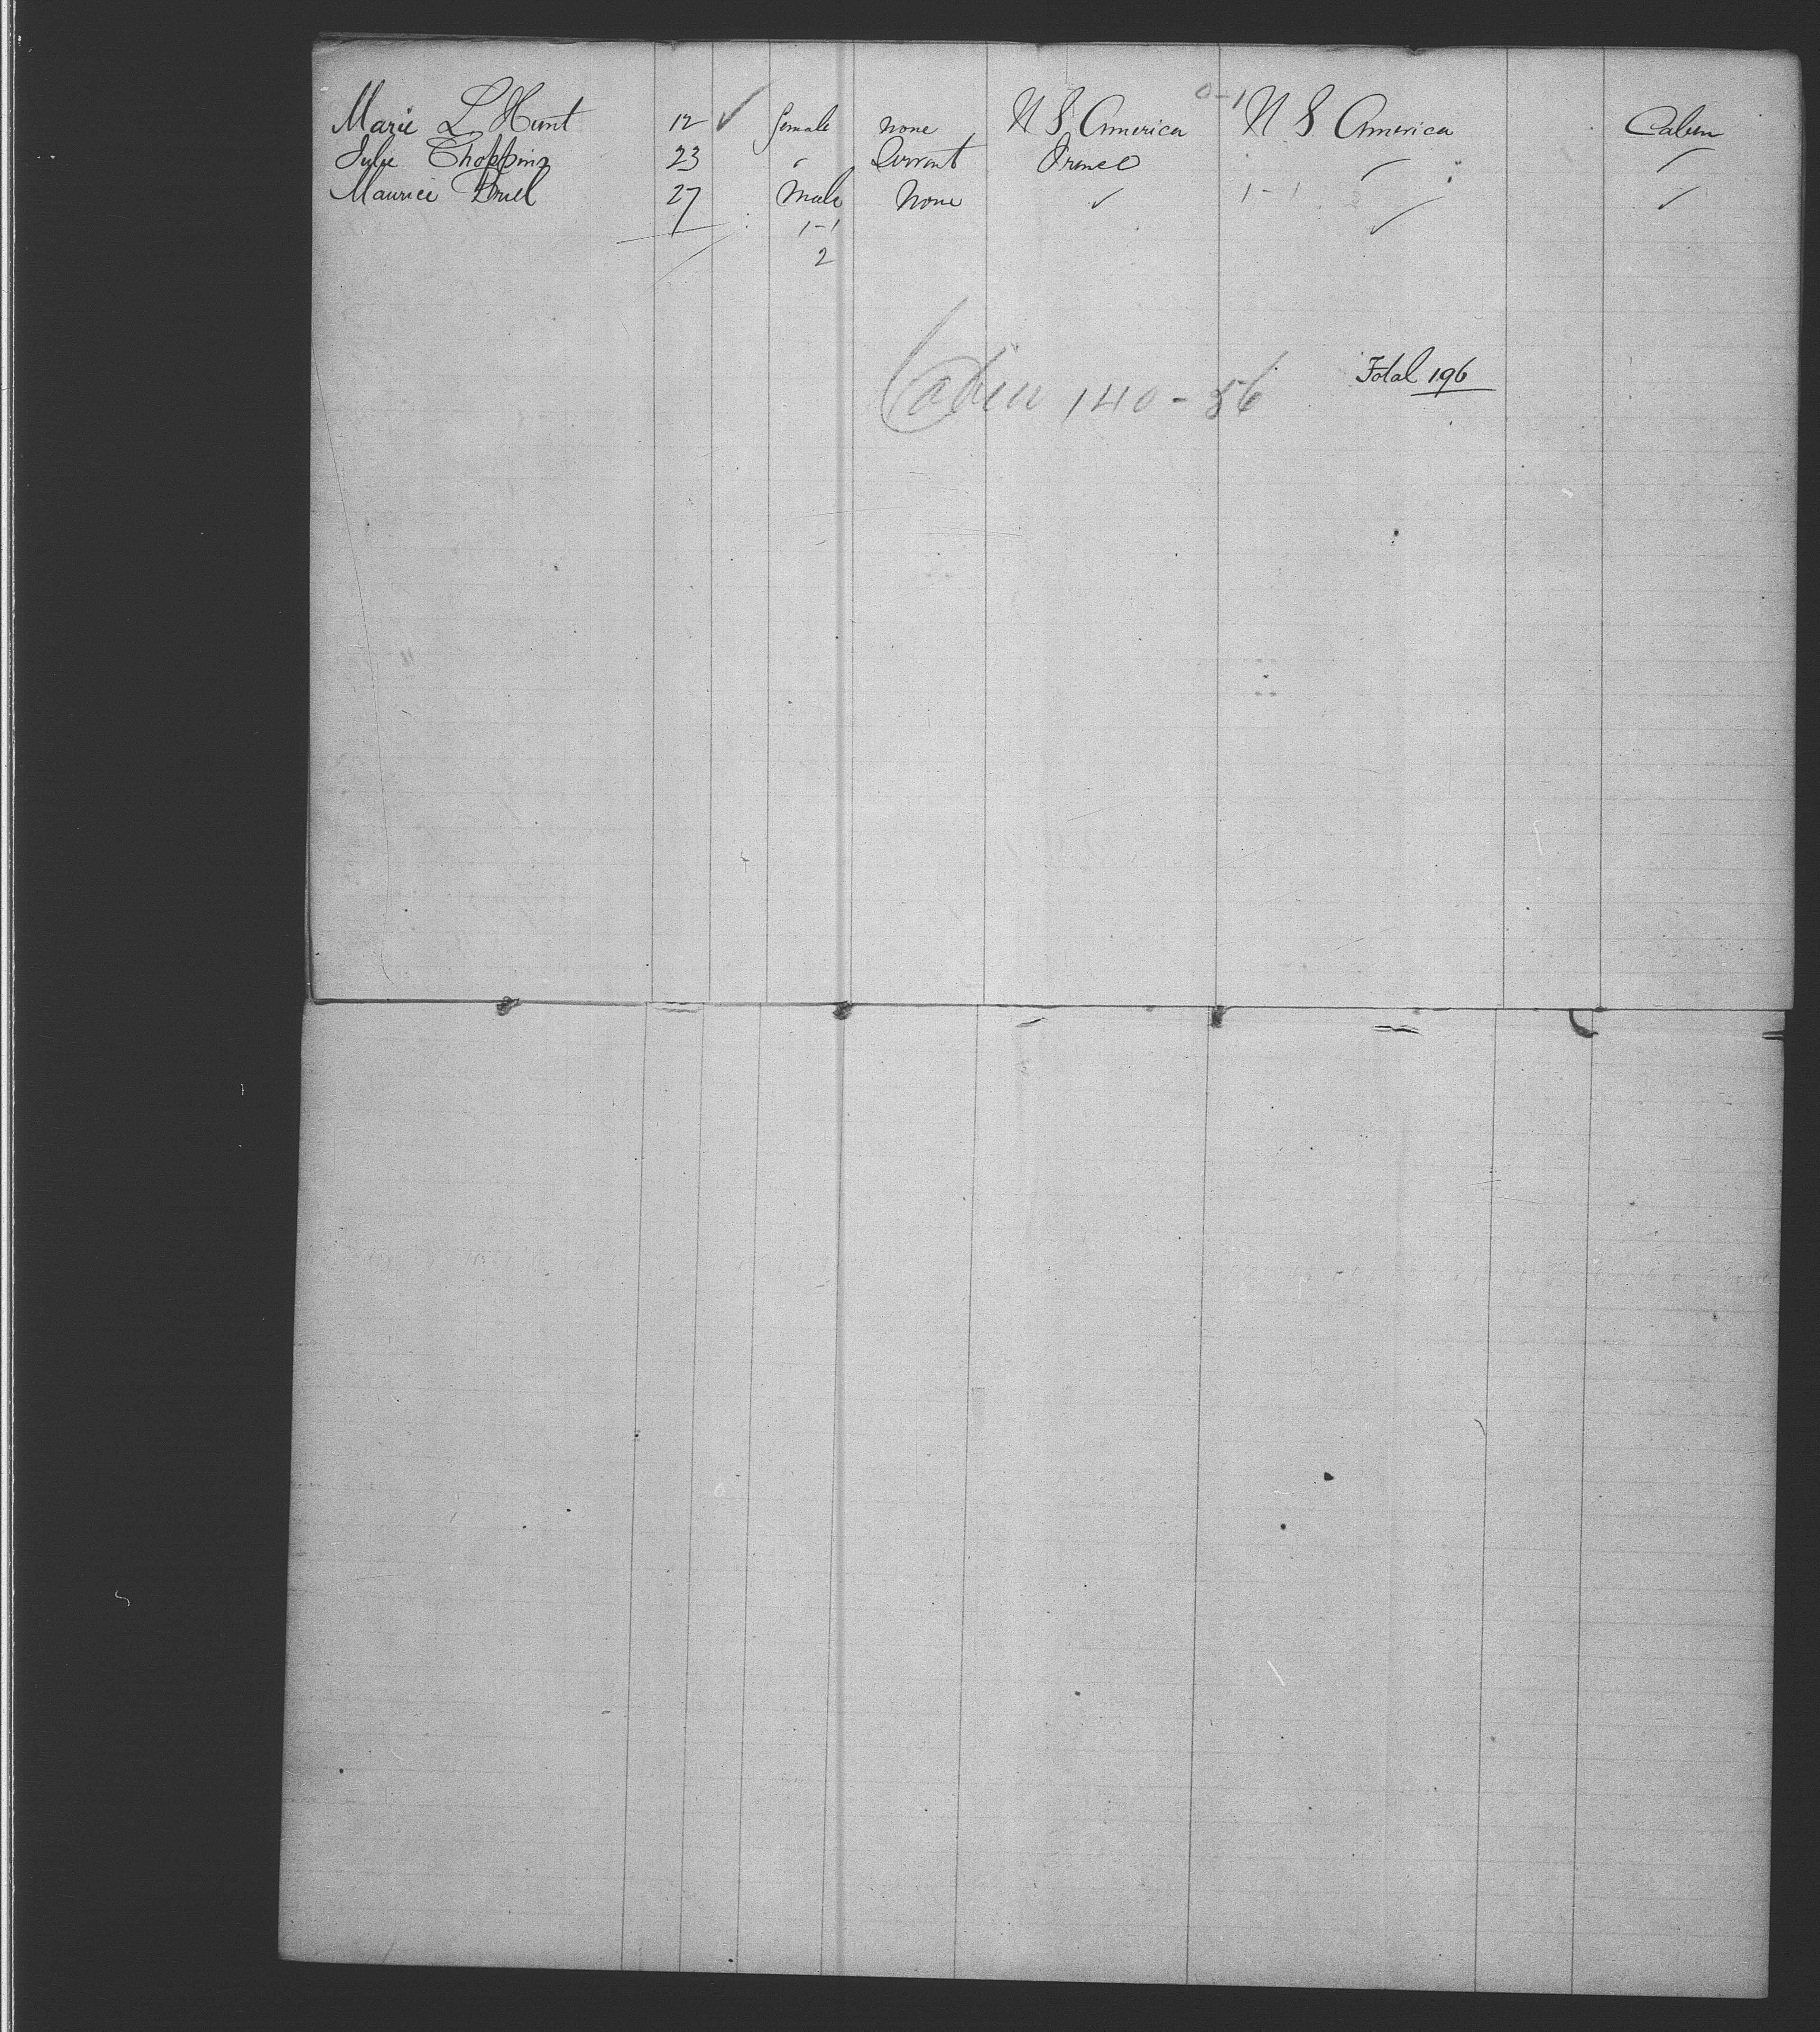 0-1
Marie L Hunt 12 ✓ female none U S America U S America Cabin
Julie Choppin 23 " Servant France ✓ ✓
Maurice Bruel 27 male None ✓ 1-1 2 ✓ ✓
1-1
2
Total 196
Cabin 140-56